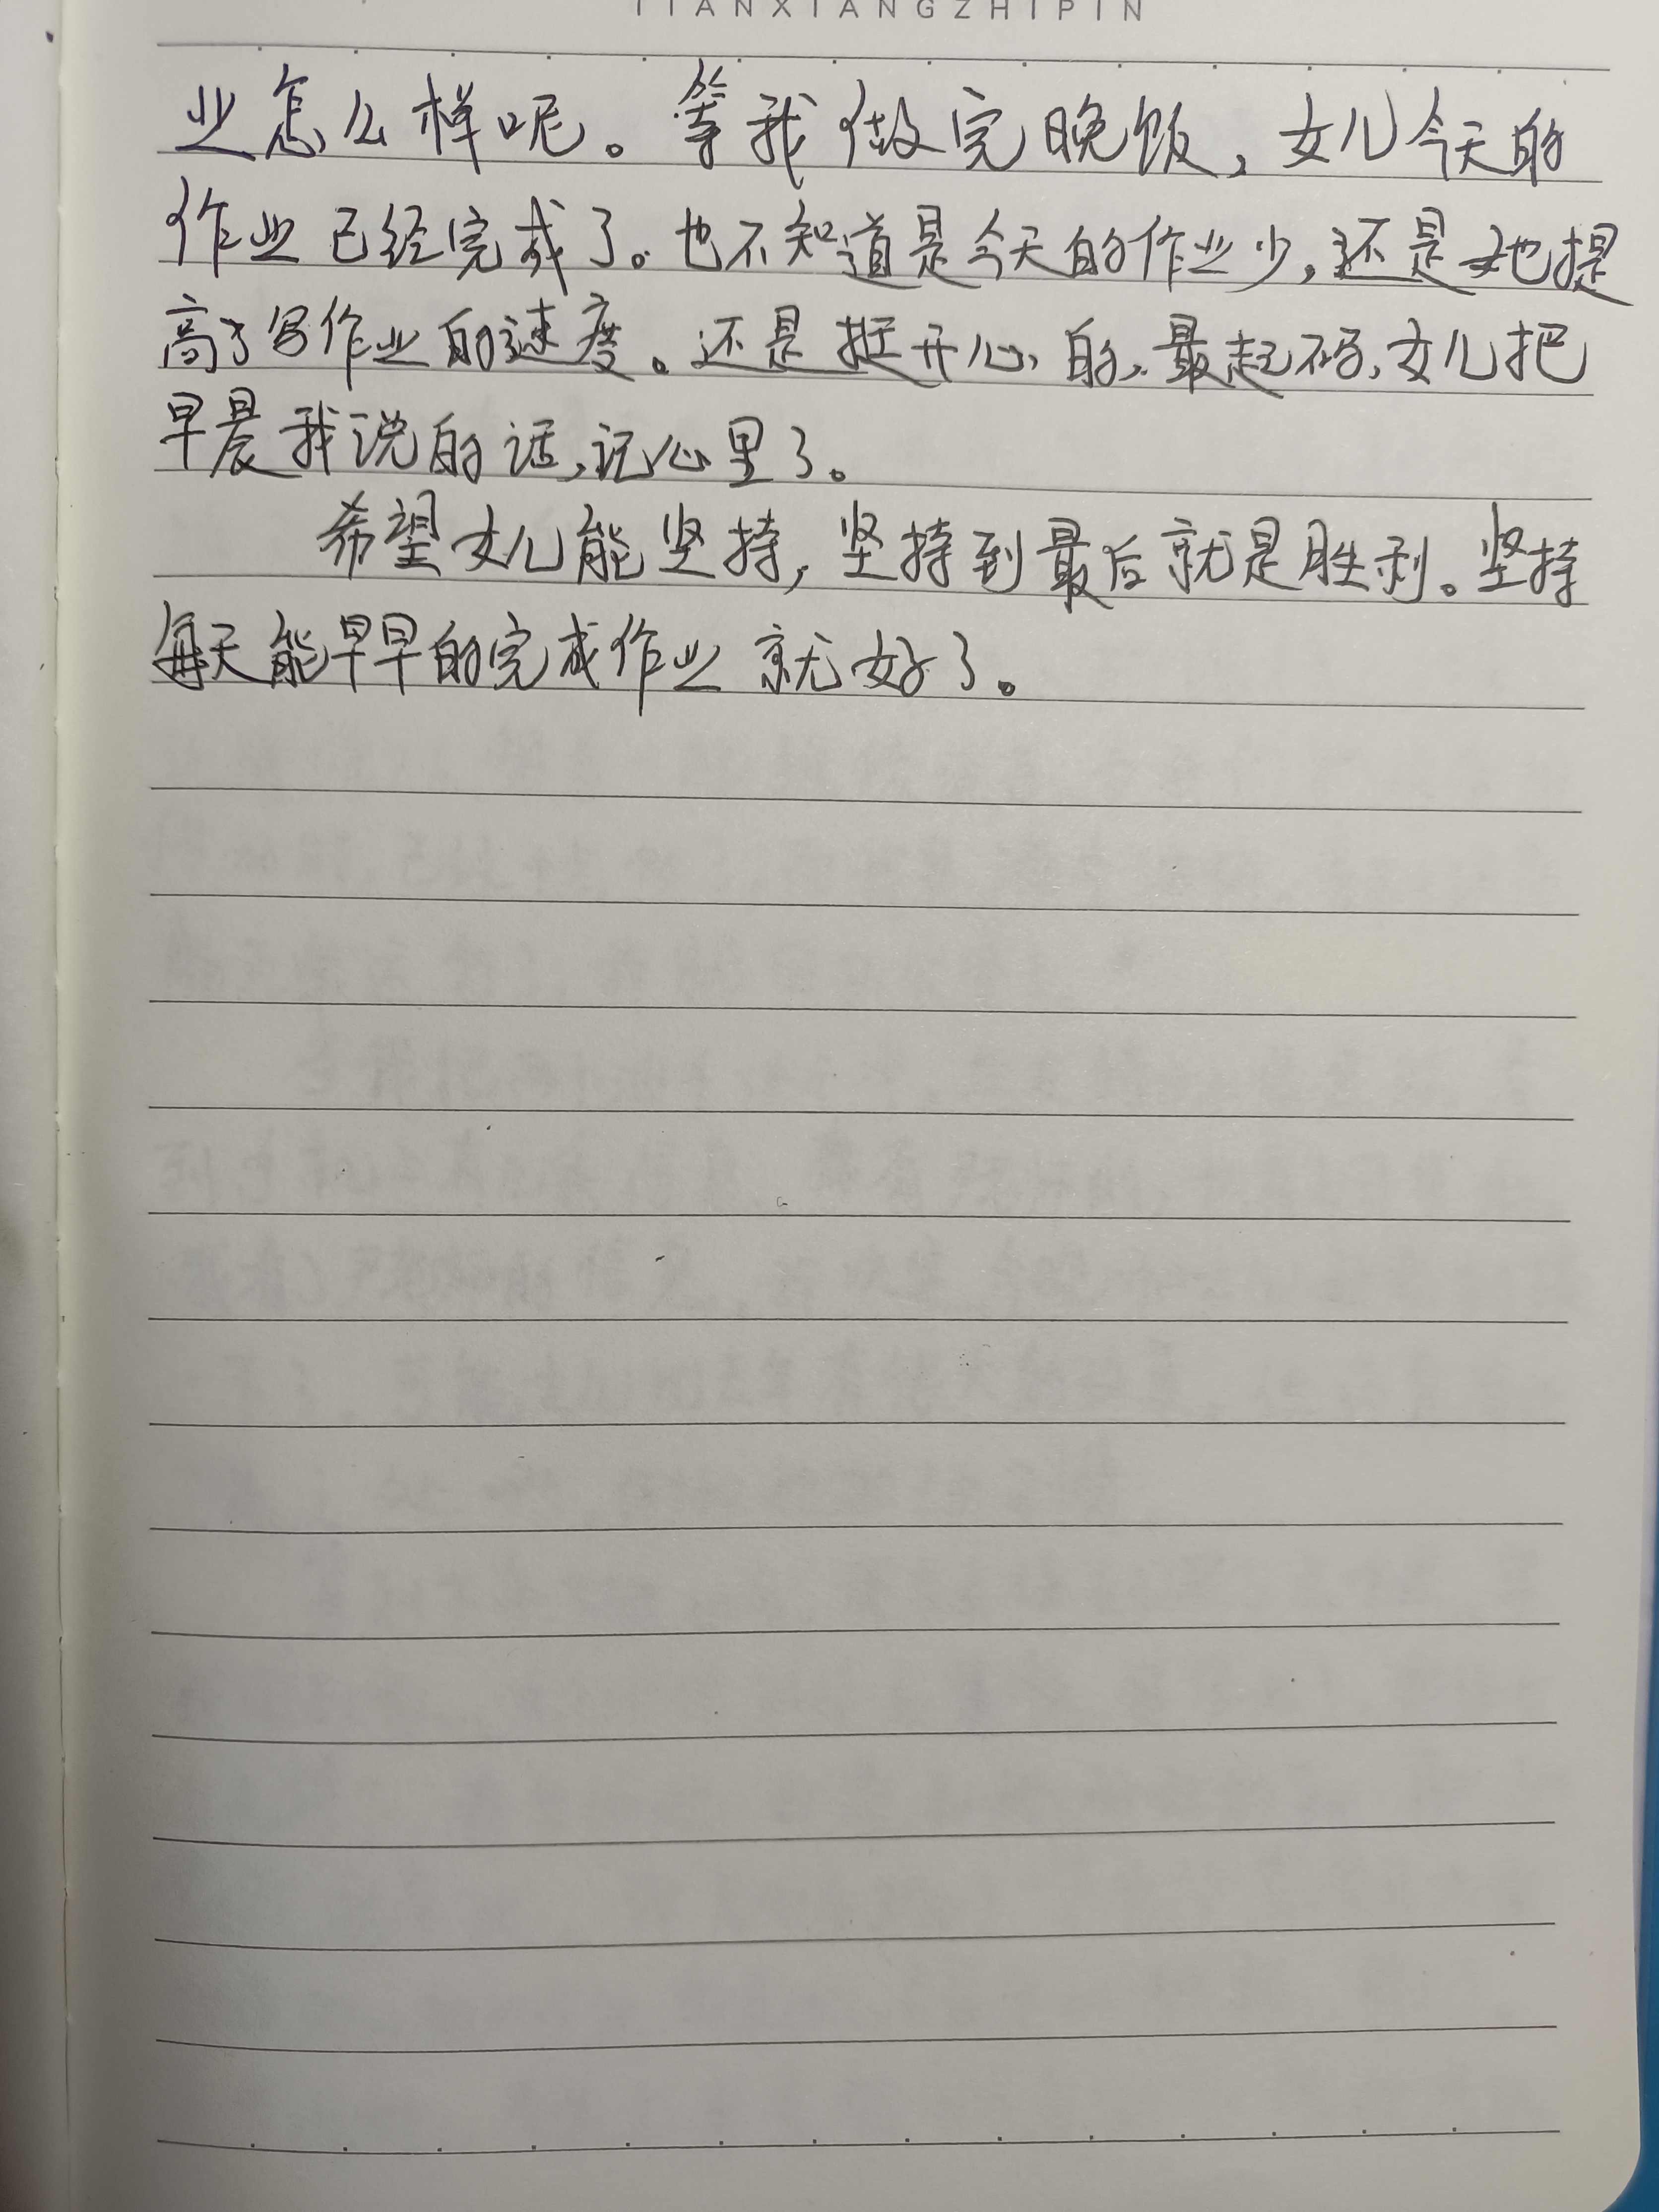 TIANXIANGZHIPIN
业怎么样呢。等我做完晚饭,女儿今天的
作业已经完成了。也不知道是今天的作业少,还是她提
高了写作业的速度。还是挺开心的,最起码,女儿把
早晨我说的话,记心里了。
希望女儿能坚持,坚持到最后就是胜利。坚持
每天能早早的完成作业就好了。